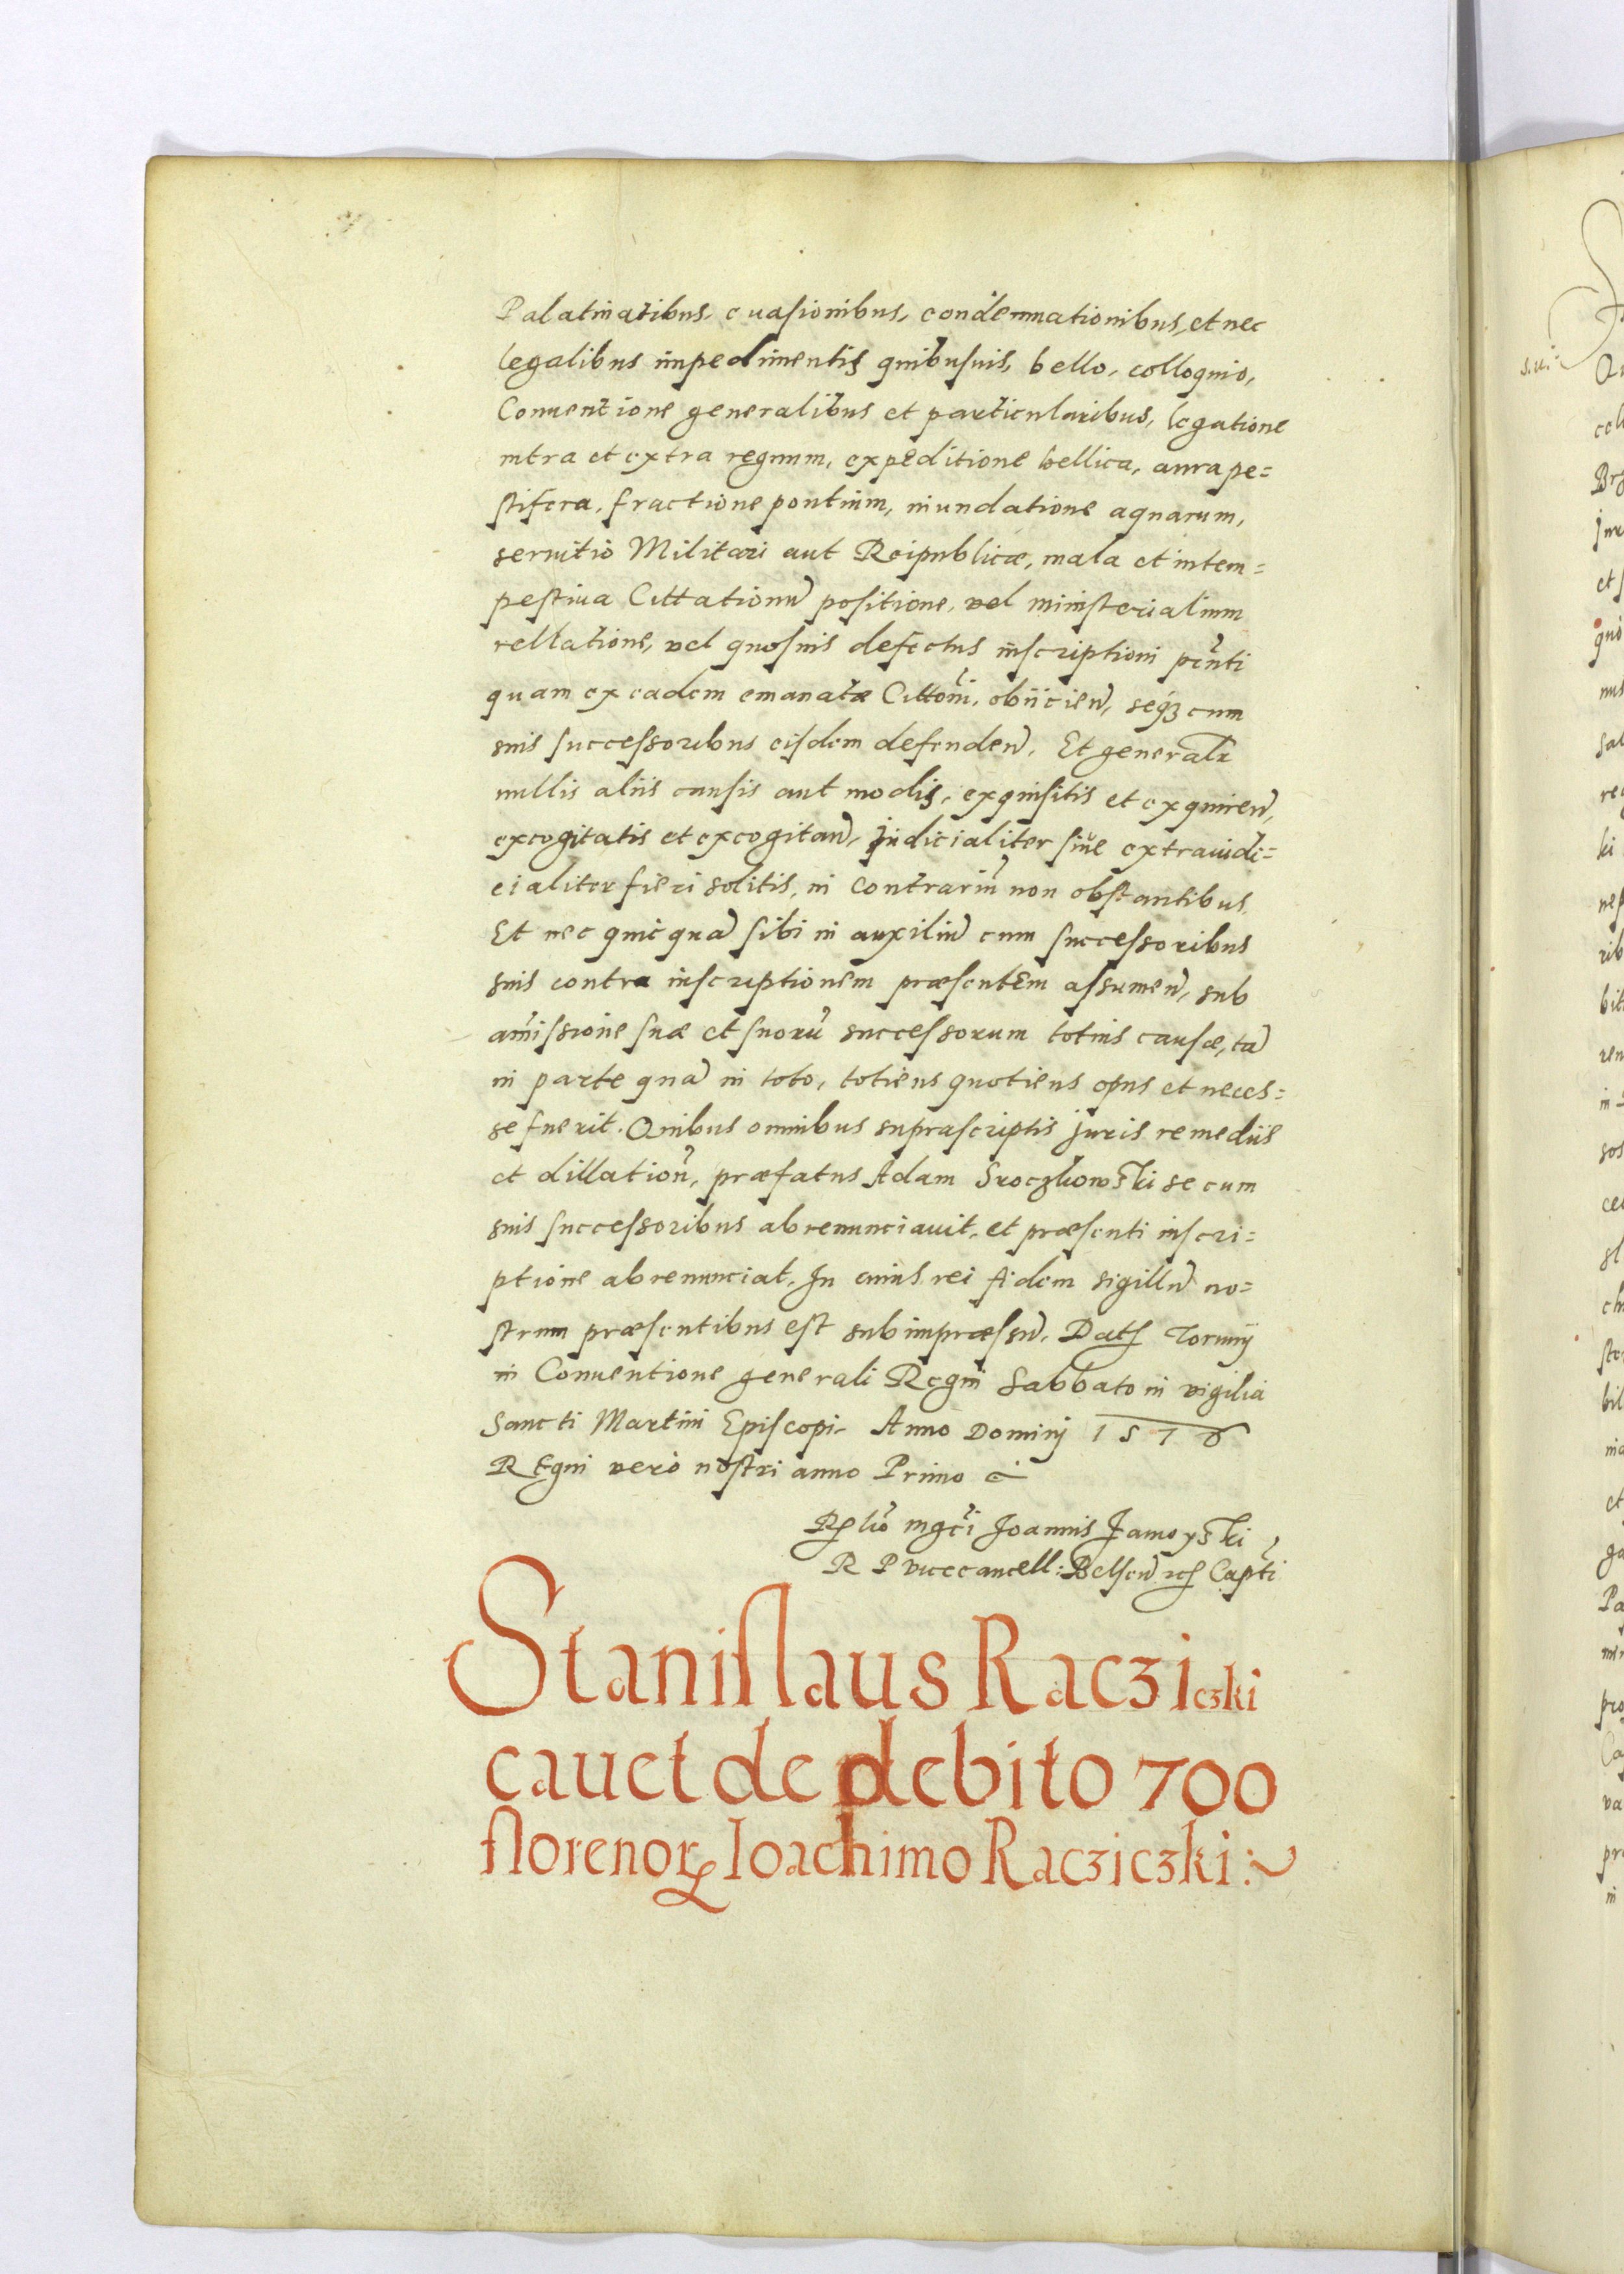 Palatinatibus, euasionibus, condemnationibus, et nec
legalibus impedimentis quibusuis, bello, colloquio,
Conuentione generalibus et particularibus, legatione
intra et extra regnum, expeditione bellica, aura pe=
stifera, fractione pontium, inundatione aquarum,
seruitio Militari aut Reipublicæ, mala et intem=
pestiua Cittationũ positione, vel ministerialium
rellatione, vel quosuis defectus inscriptioni pñti
quam ex eadem emanatæ Cittoni, obijcieñ, seqȝ cum
suis successoribus eisdem defendeñ. Et generalr
nullis aliis causis aut modis, exquisitis et exquireñ,
excogitatis et excogitañ, judicialiter siue extraiudi=
cialiter fieri solitis, in contrariũ non obstantibus
Et nec quicquã sibi in auxiliũ cum successoribus
suis contra inscriptionem præsentem assumeñ, sub
amissione suæ et suorũ successorum totius causæ, tã
in parte quã in toto, totiens quotiens opus et neces=
se fuerit. Quibus omnibus suprascriptis juris remediis
et dillationĩ, præfatus Adam Sroczkowski se cum
suis successoribus abrenunciauit, et præsenti inscri=
ptione abrenunciat. In cuius rei fidem sigillũ no=
strum præsentibus est subimpræssũ. Datꝭ Torunij
in Conuentione generali Regni Sabbato in vigilia
Sancti Martini Episcopi. Anno Dominj 1576
Regni vero nostri anno Primo
Rꝑ lio mgci Joannis Zamoyski
R P vicecancell: Belseñ Capti
Stanislaus Racziczki
cauet de debito 700
florenorꝝ Ioachimo Racziczki:~